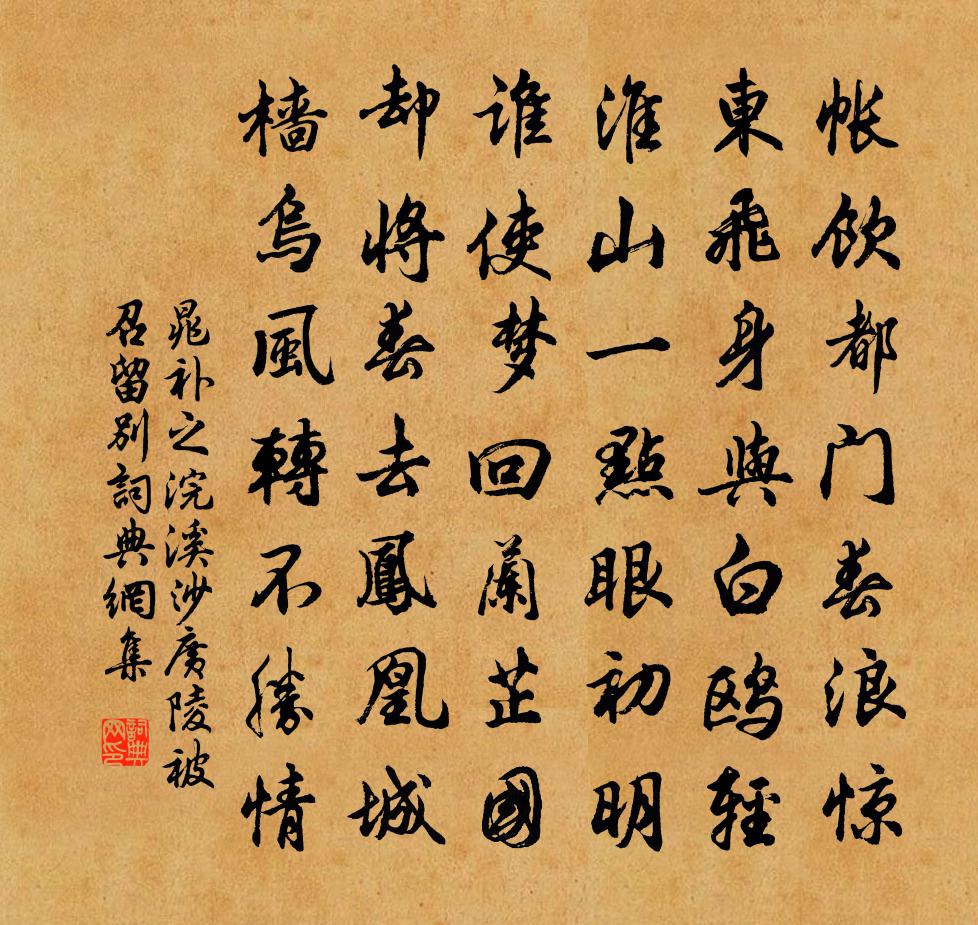 帐飲都门春浪惊
東飛身與白鸥輕
淮山一點眼初明
谁使梦回蘭芷國
却將春去鳳凰城
檣烏風轉不勝情
晁补之浣溪沙廣陵被
召留別詞典網集
詞典網印